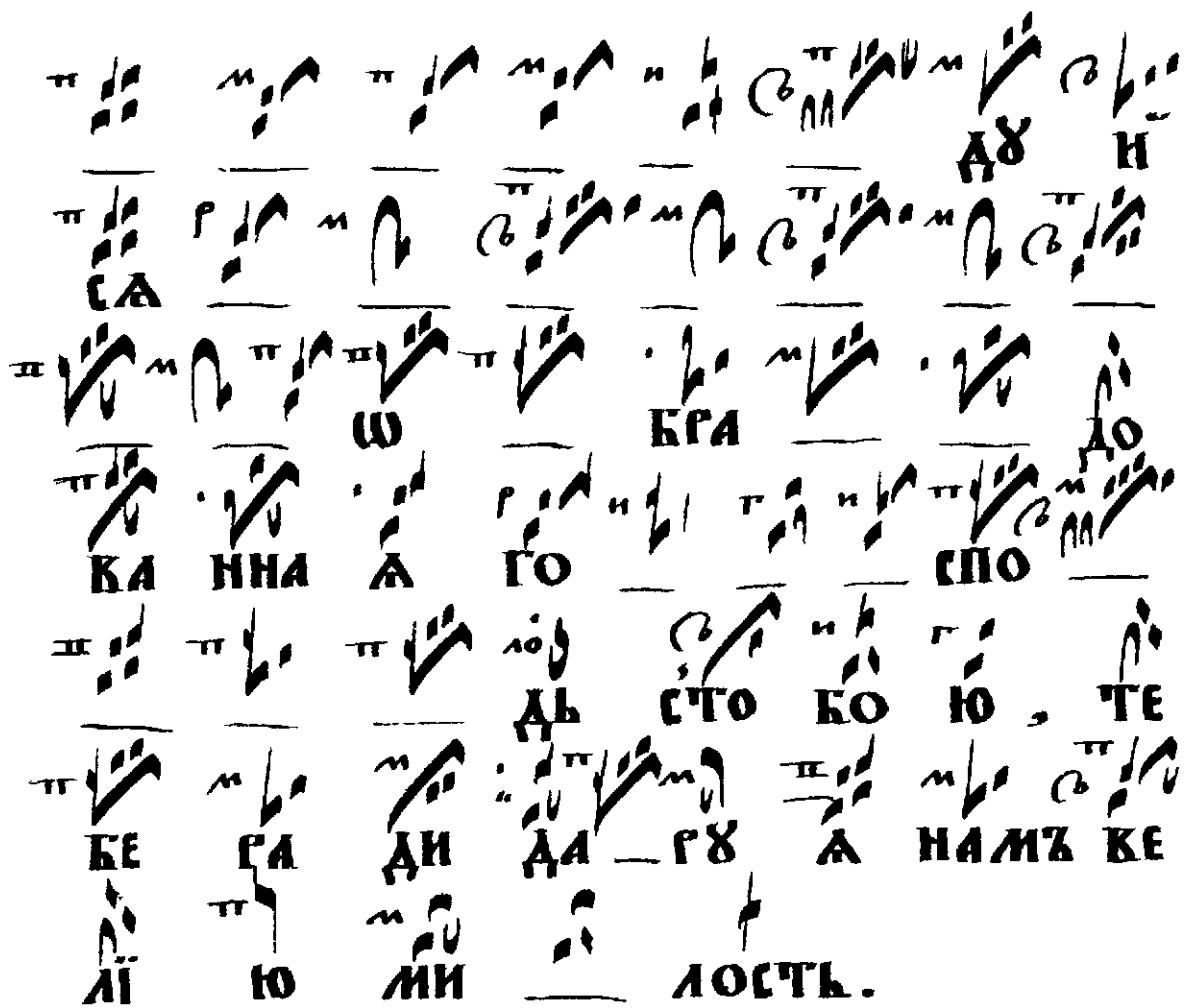 ДꙊ Й
СѦ
Ѡ БРА ДО
ВА ННА Ѧ ГО СПО
ДЬ СТО БО Ю , ТЕ
БЕ РА ДИ ДА РꙊ Ѧ НАМЪ ВЕ
ЛЇ Ю МИ ЛОСТЬ.